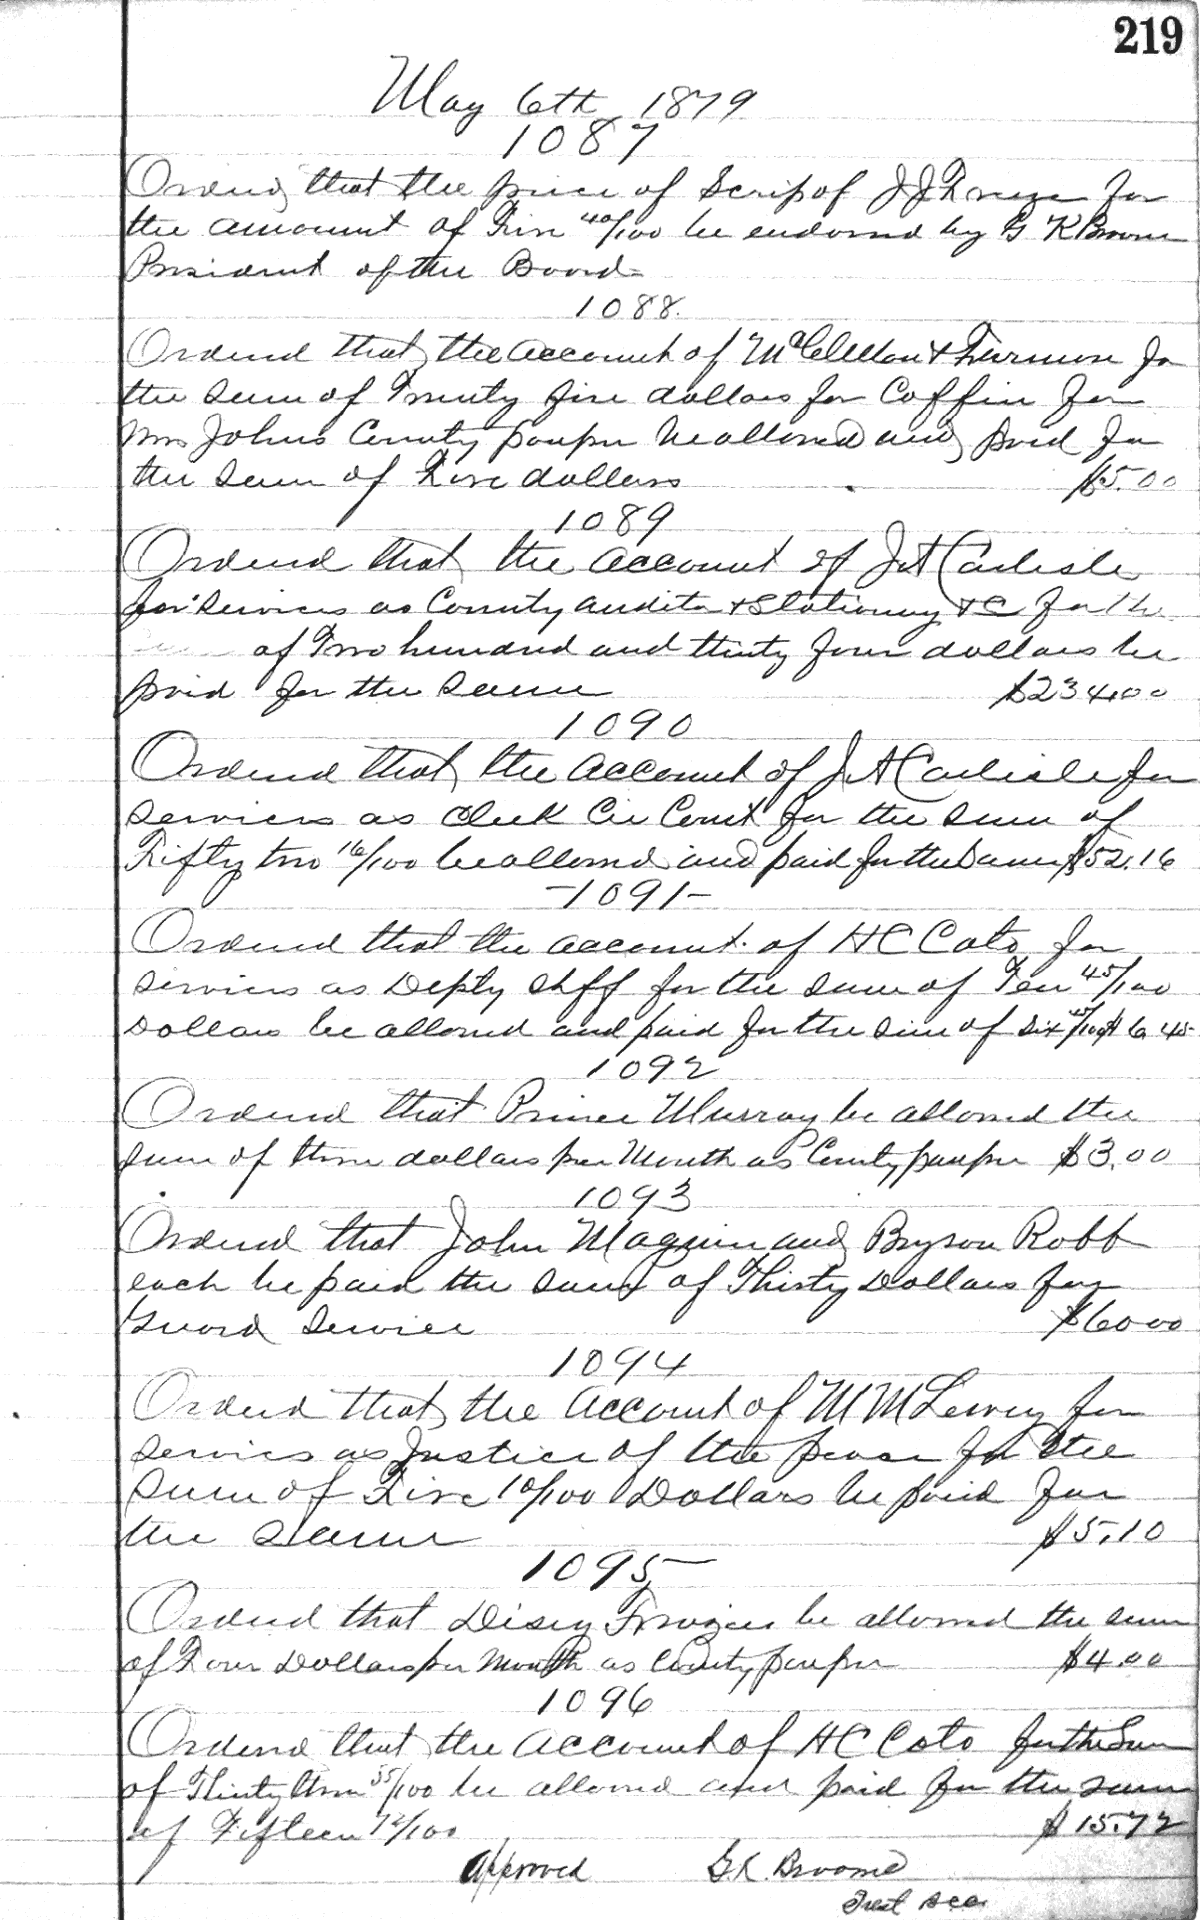 219
May 6th 1879
1087
Ordered that the price of Scrip of J J for
the amount of Five 40/100 be endorsed by G K Broome
President of the Board
1088.
Ordered that the account of McClellan & Furmon for
the sum of Twenty five dollars for Coffin for
Mrs Johns County pauper be allowed and paid for
the sum of Five dollars $5.00
1089
Ordered that the account of J A Carlisle
for services as County auditor & Stationery &C for the
of Two hundred and thirty four dollars be
paid for the same $234.00
1090
Ordered that the account of J A Carlisle for
services as Clerk Cir Court for the sum of
Fifty two 16/100 be allowed and paid for the same $52.16
-1091-
Ordered that the account of H C Cato for
services as Depty Shff for the sum of Ten 45/100
Dollars be allowed and paid for the sum of six 45/100 $6 45
1092
Ordered that Prince Murray be allowed the
sum of three dollars per Month as County pauper $3.00
1093
Ordered that John Maguire and Bryson Robb
each be paid the sum of Thirty Dollars for
Guard Service $60 00
1094
Ordered that the account of M M Lewey for
services as Justice of the peace for the
sum of Five 10/100 Dollars be paid for
the same $5.10
1095
Ordered that be allowed the sum
of Four Dollars per Month as County pauper $4.00
1096
Ordered that the account of H C Cato for the Sum
of Thirty three 55/100 be allowed and paid for the sum
of Fifteen 72/100 $15.72
Approved G.K. Broome